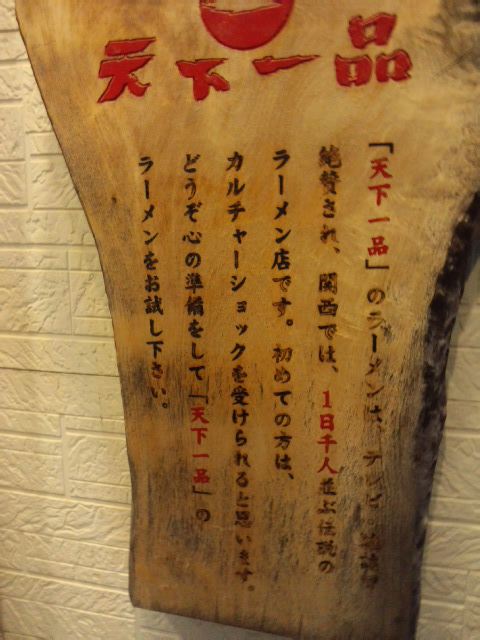 天下一品
「天下一品」のラーメンは、テレビ・
絶賛され、関西では、1日千人並ぶ伝説の
ラーメン店です。初めての方は、
カルチャーショックを受けられると思います。
どうぞ心の準備をして「天下一品」の
ラーメンをお試し下さい。